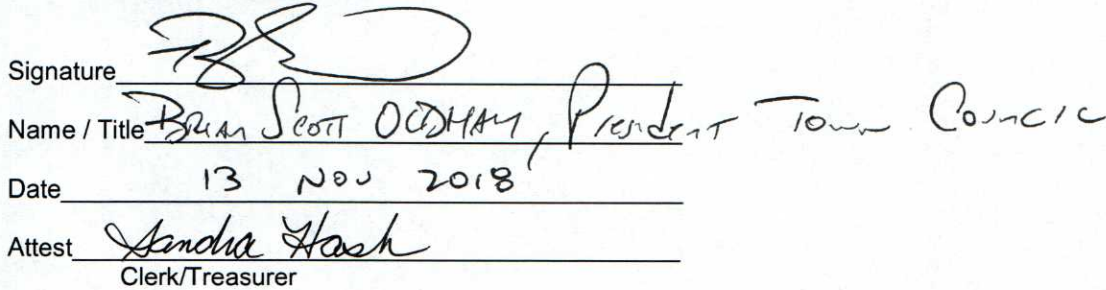 Signature
Name / Title Brian Scott Oldham, President Town Council
Date 13 Nov 2018
Attest Sandra Hash
Clerk/Treasurer